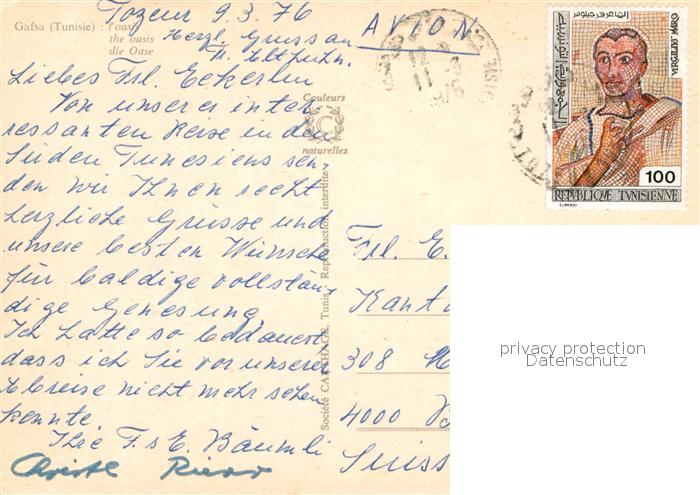 Tozeur 9.3.76
Gafsa (Tunisie) : l'oasis
the oasis
die Oase
Herzl. Gruss an
AVION
Liebes Frl. Eckerlin
Von unserer inter
ressanten Reise in den
Süden Tunesiens sen-
den wir Ihnen recht
herzliche Grüsse und
unsere besten Wünsche
für baldige vollstän-
dige Genesung
Ich hatte so bedauert
dass ich Sie vor unserer
Abreise nicht mehr sehen
konnte.
Ihre F. & E. Bäumli
Couleurs
naturelles
Société CARTHAGE, Tunis - Reproduction interdite
Frl. E.
Kant
308
4000 B
Suiss
VIRGILIUS MARO
100
REPUBLIQUE TUNISIENNE
privacy protection
Datenschutz